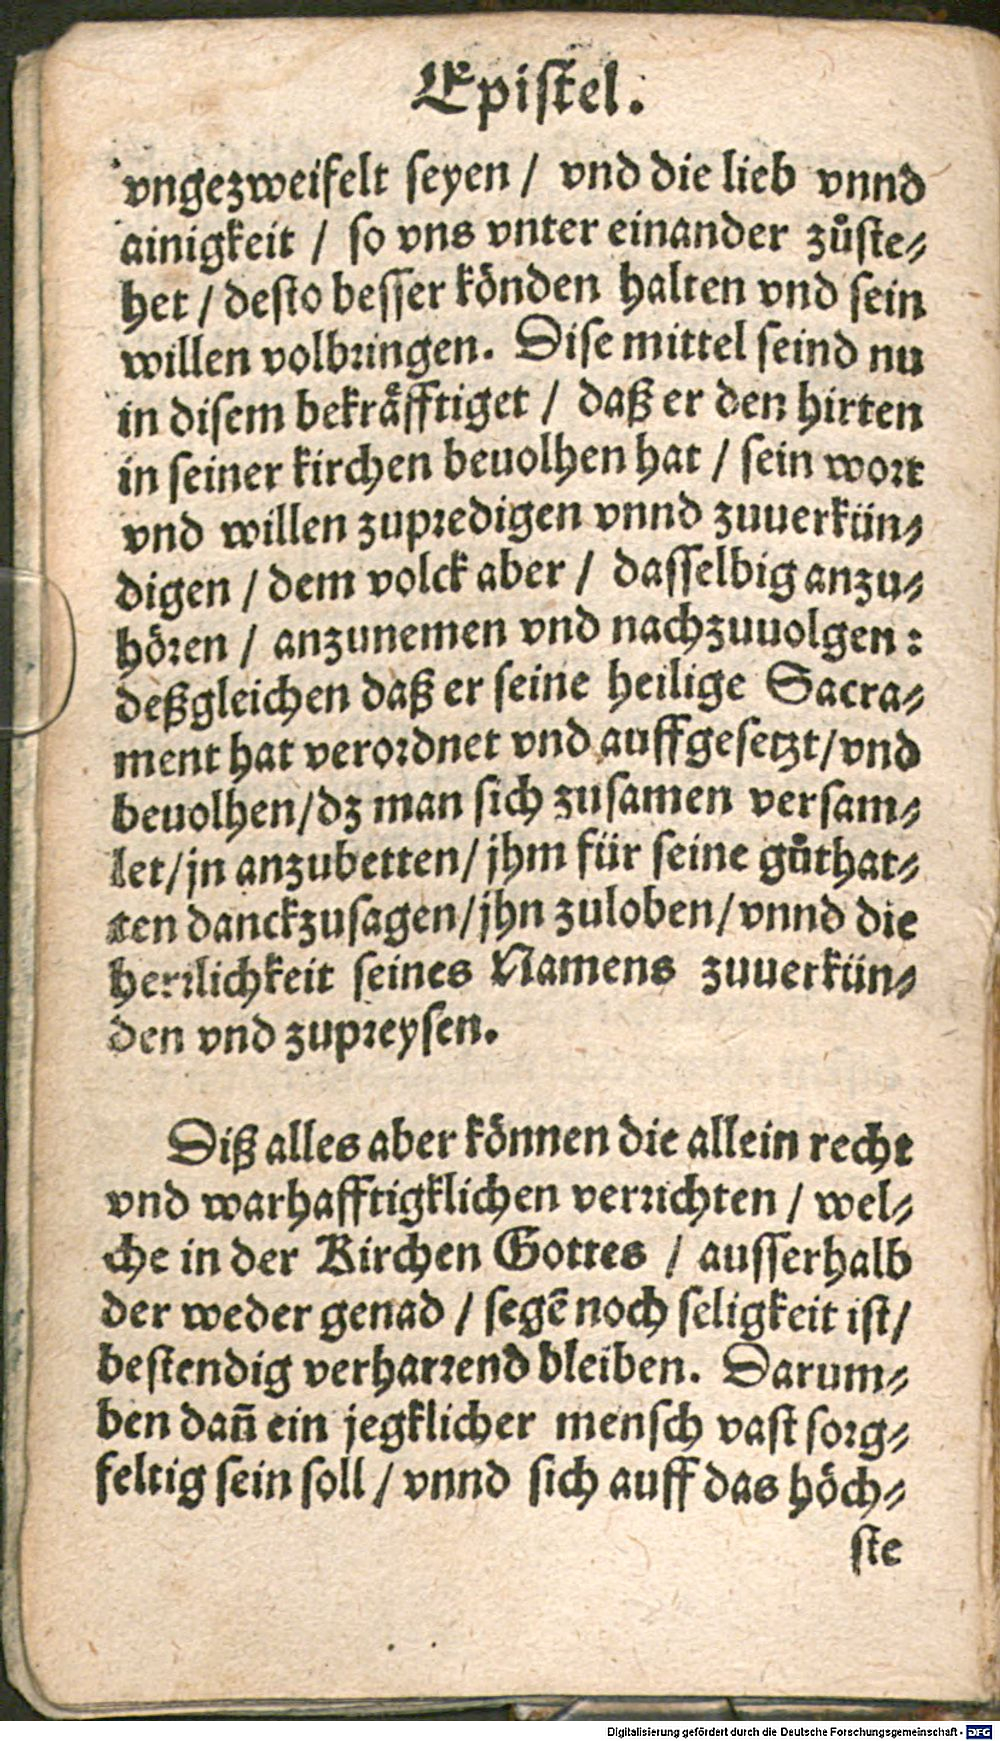 Epiſtel.
vngezweifelt ſeyen / vnd die lieb vnnd
ainigkeit / ſo vns vnter einander zuͦſte⸗
het / deſto beſſer koͤnden halten vnd ſein
willen volbꝛingen. Diſe mittel ſeind nu
in diſem bekraͤfftiget / daß er den hirten
in ſeiner kirchen beuolhen hat / ſein woꝛt
vnd willen zupꝛedigen vnnd zuuerkün⸗
digen / dem volck aber / daſſelbig anzu⸗
hoͤꝛen / anzunemen vnd nachzuuolgen:
deßgleichen daß er ſeine heilige Sacra⸗
ment hat veroꝛdnet vnd auffgeſetzt/vnd
beuolhen/dz man ſich zuſamen verſam⸗
let/jn anzubetten/jhm für ſeine guͦthat⸗
ten danckzuſagen/jhn zuloben/vnnd die
herꝛlichkeit ſeines Namens zuuerkün⸗
den vnd zupꝛeyſen.
Diß alles aber koͤnnen die allein recht
vnd warhafftigklichen verꝛichten / wel⸗
che in der Kirchen Gottes / auſſerhalb
der weder genad / ſegē noch ſeligkeit iſt/
beſtendig verharꝛend bleiben. Darum⸗
ben dañ ein jegklicher menſch vaſt ſoꝛg⸗
feltig ſein ſoll / vnnd ſich auff das hoͤch⸗
ſte
Digitalisierung gefördert durch die Deutsche Forschungsgemeinschaft - DFG